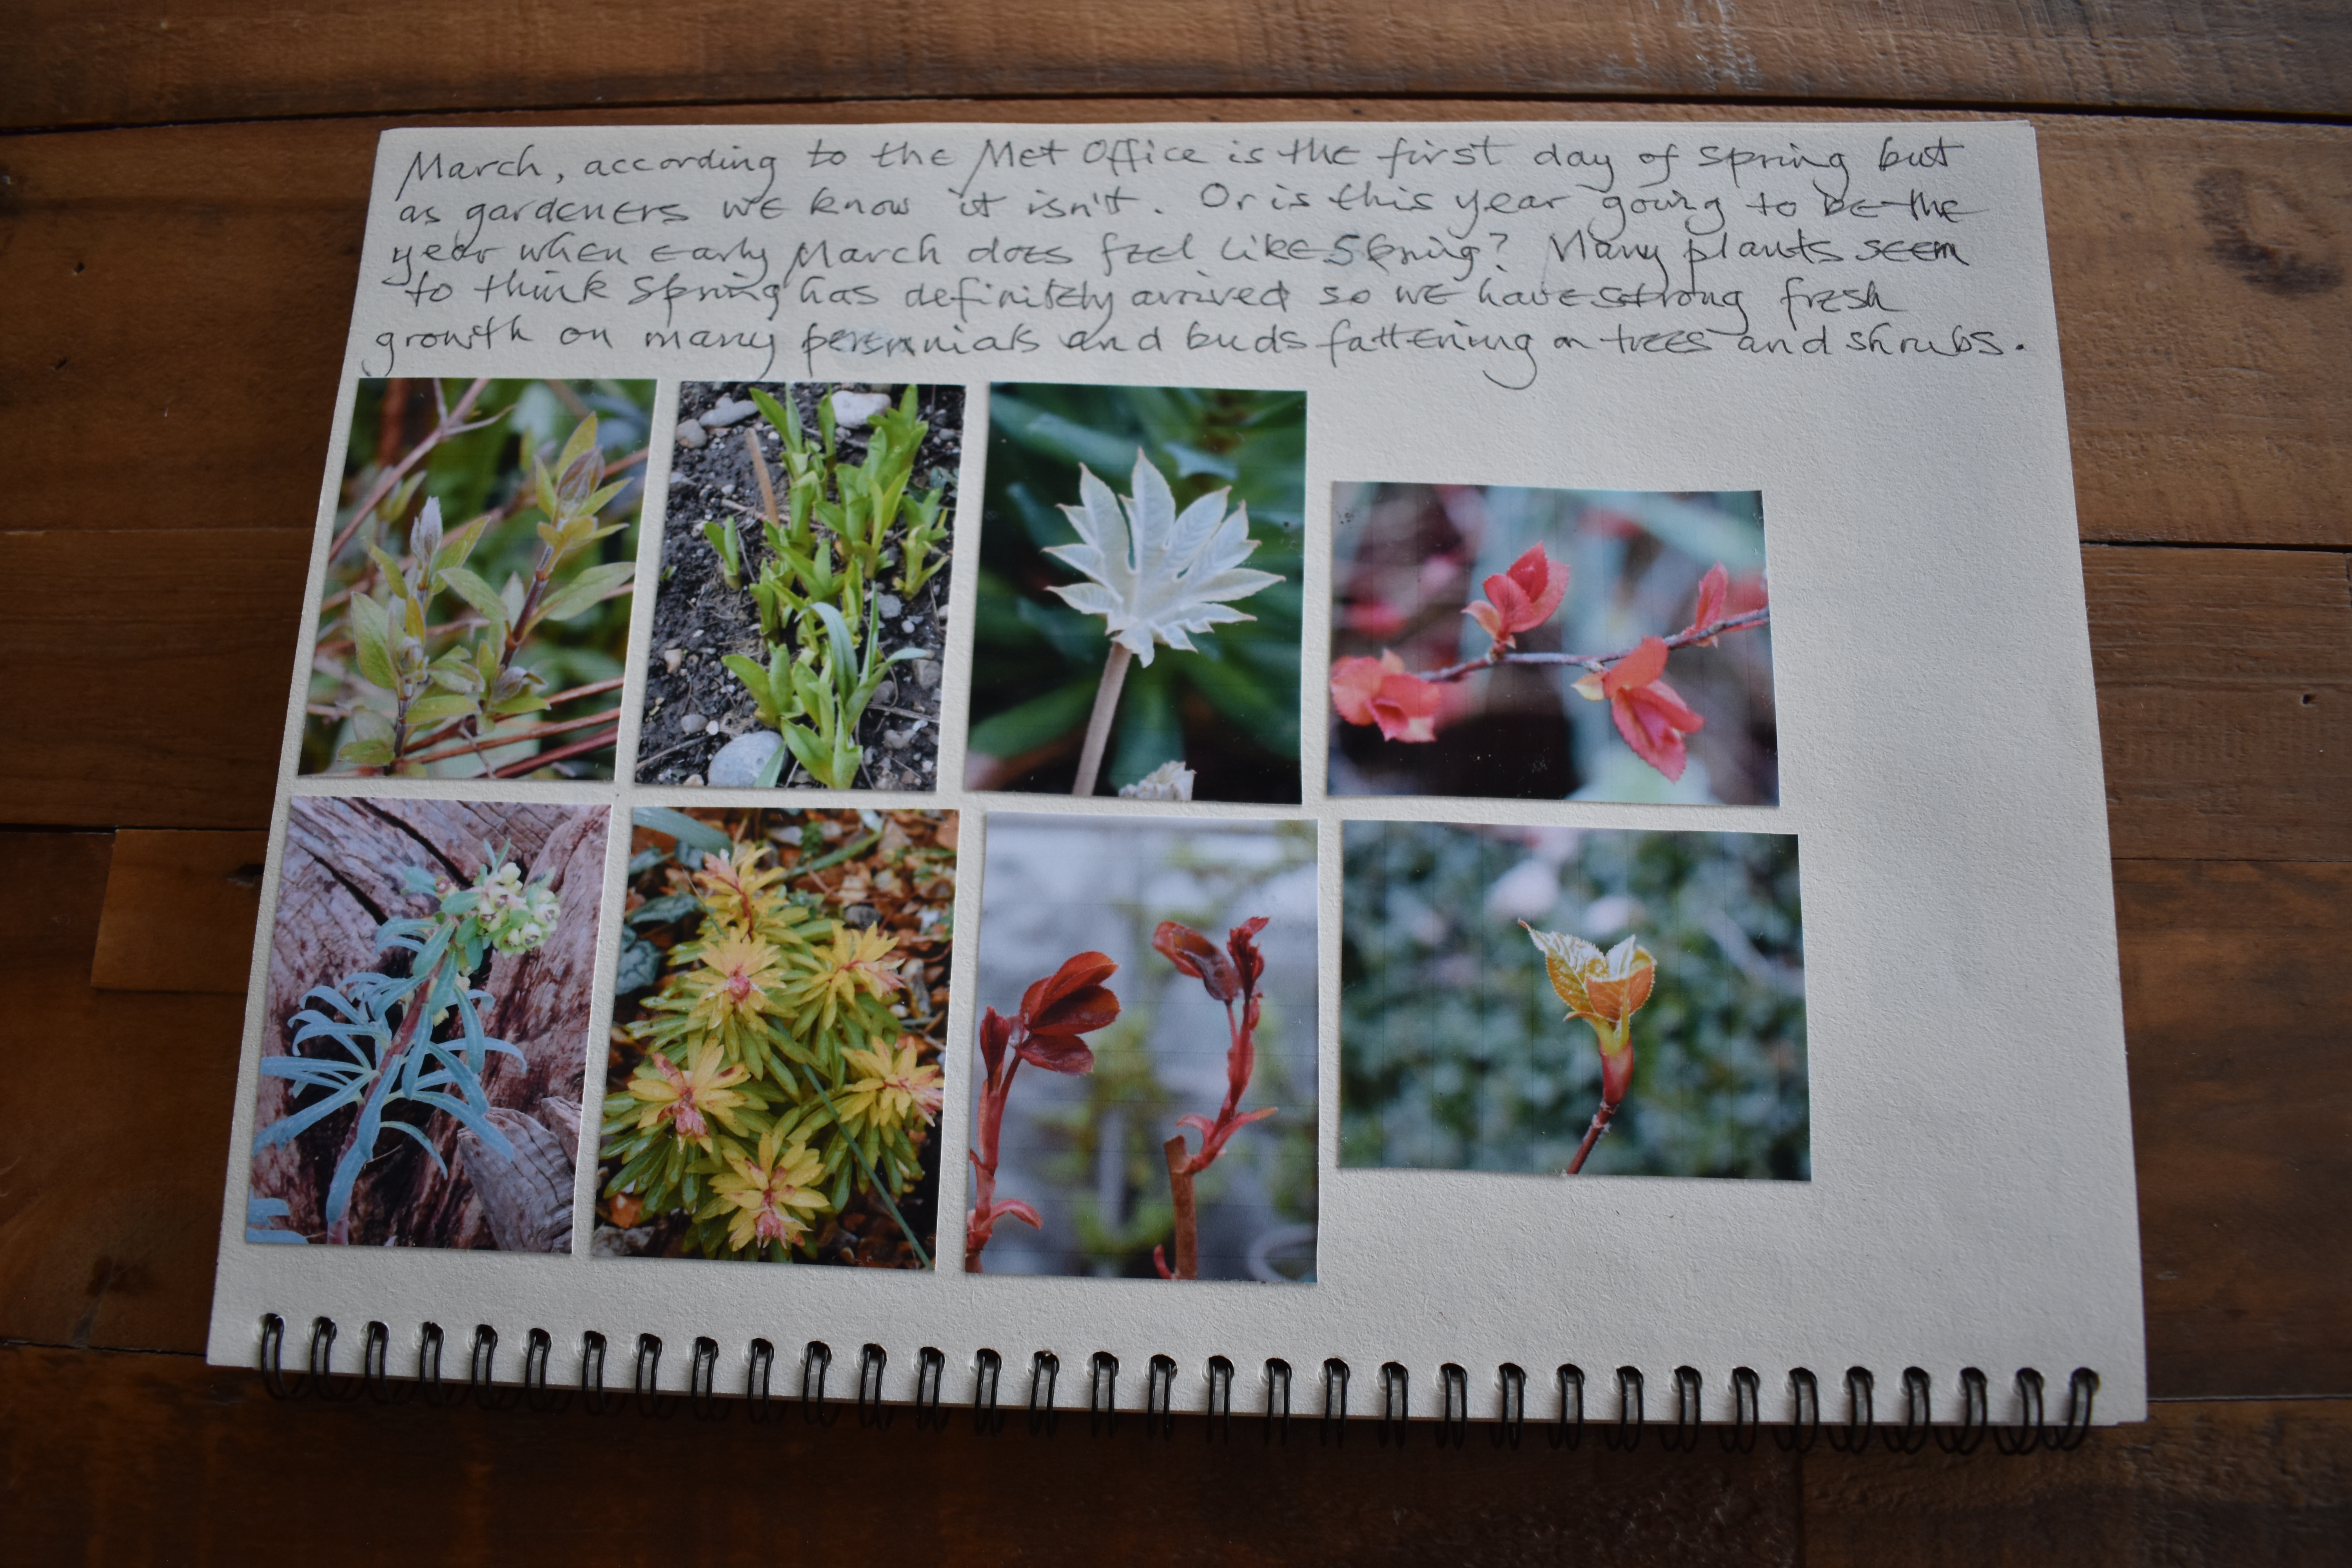 March, according to the Met Office is the first day of spring but
as gardeners we know it isn't. Or is this year going to be the
year when early March does feel like Spring? Many plants seem
to think Spring has definitely arrived so we have strong fresh
growth on many perennials and buds fattening on trees and shrubs.